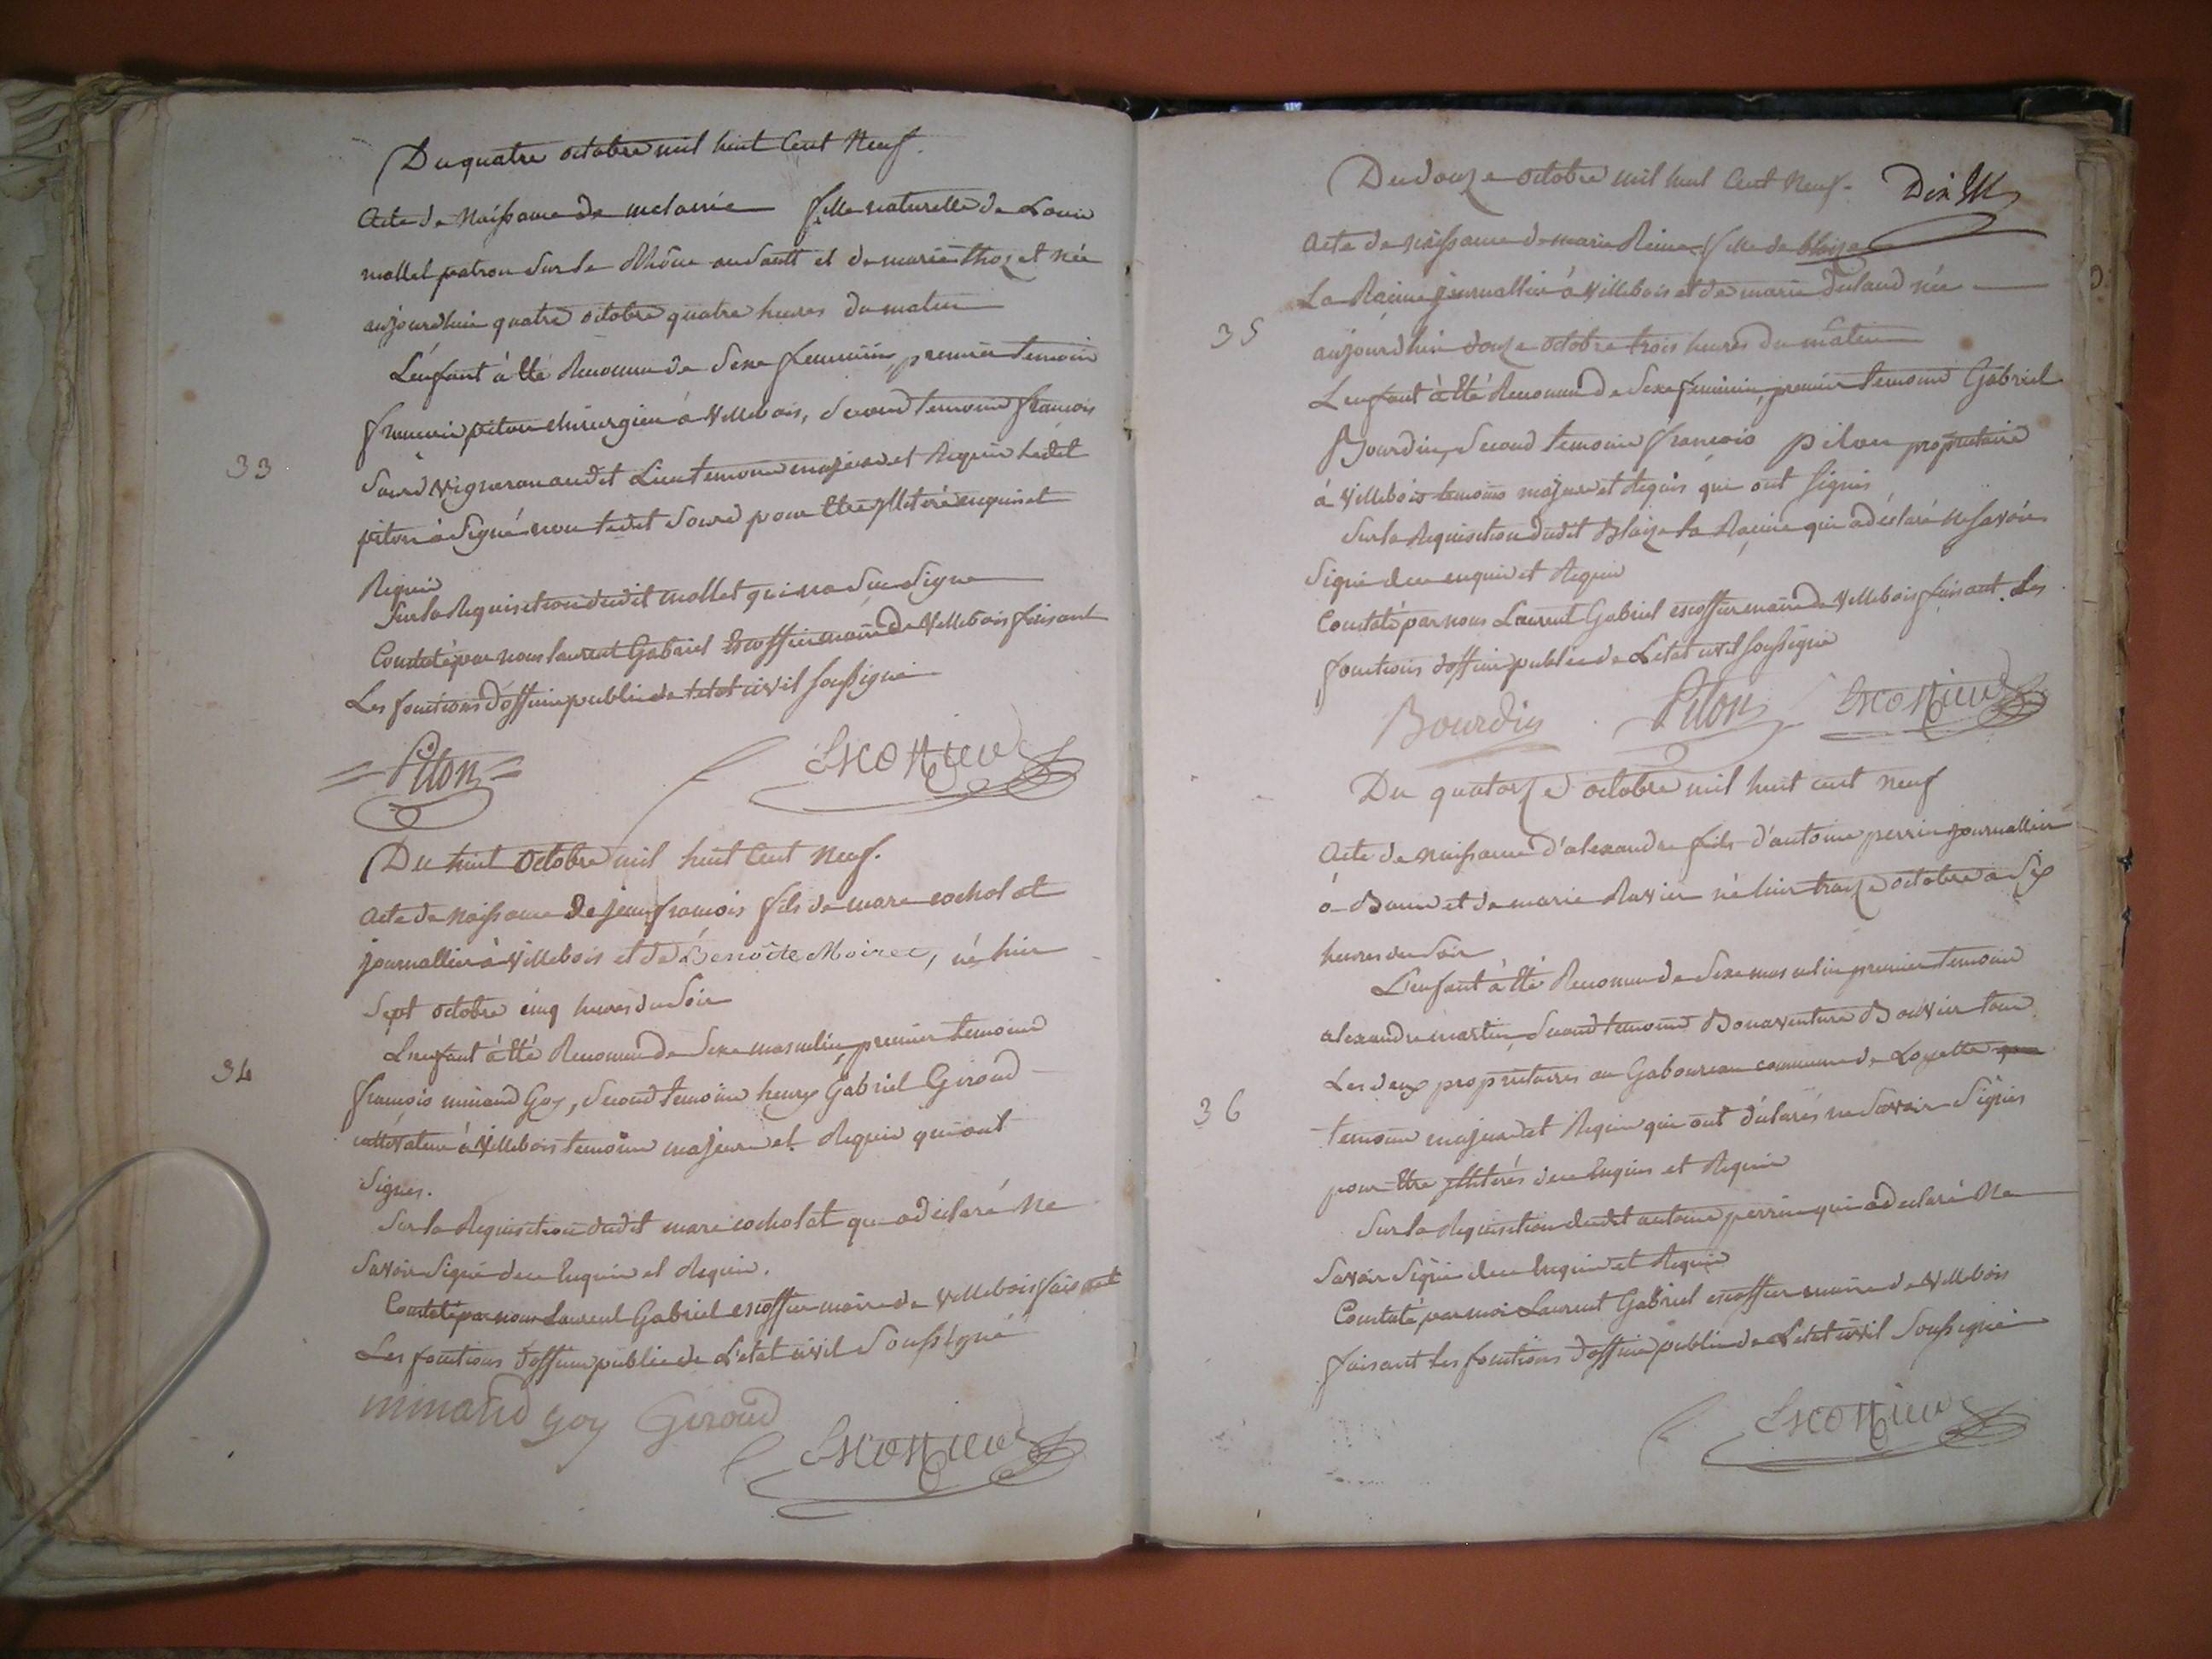 Du quatre octobre mil huit Cent Neuf.
Acte de Naissance de melanie fille naturelle de Louis
mollet patron sur le Rhône au Sault et de marie thoz et née
aujourdhui quatre octobre quatre heures du matin
L'enfant à Eté Reconnu de Sexe feminin, premier temoin
francois piton chirurgien à Villebois, second temoin francois
vigneron audit Lieu temoins majeurs et Requis ledit
piton à Signé non ledit pour Etre illiteré enquis et
Requis
33
Sur la Requisition dudit mollet qui na Su Signe
Constaté par nous laurent Gabriel Escoffier maire de Villebois faisant
Les fonctions d'officier public de letat civil soussigné
Piton Escoffier
Du huit octobre mil huit Cent Neuf.
Acte de Naissance de jean francois fils de marc cocholat
journallier à Villebois et de Benoite Moiret, né hier
Sept octobre cinq heures du Soir
L'enfant à Eté Reconnu de Sexe masculin, premier temoin
34
francois minand Goy, second temoin henry Gabriel Giroud
cultivateur à Villebois temoins majeurs et Requis qui ont
Signés.
Sur la Requisition dudit marc cocholat qui a déclaré Ne
Savoir Signé de ce Enquis et Requis.
Constaté par nous Laurent Gabriel escoffier maire de Villebois faisant
Les fonctions d'officier public de L'etat civil Soussigné
minand goy Giroud
Escoffier
Du douze octobre mil huit Cent Neuf.
Acte de naissance de marie Reine fille de blaize
La Racine journallier à Villebois et de marie née
35
aujourdhui douze octobre trois heures du matin
L'enfant à Eté Reconnu de Sexe feminin, premier temoin Gabriel
Bourdin, Second temoin francois piton propriétaire
à Villebois temoins majeurs et Requis qui ont signés
Sur la Requisition dudit Blaize la Racine qui a déclaré ne savoir
Signé de ce enquis et Requis
Constaté par nous Laurent Gabriel escoffier maire de Villebois faisant Les
fonctions d'officier public de L'etat civil soussigné
Bourdin Piton Escoffier
Du quatorze octobre mil huit cent neuf
Acte de naissance d'alexandre fils d'antoine perrin journallier
à et de marie Ravier né hier treize octobre à Six
heures du Soir
L'enfant à Eté Reconnu de Sexe masculin premier temoin
alexandre martin, Second temoin Bonaventure Bouvier tous
Les deux propriétaires au Gaboureau commune de Loyette
36
temoins majeurs et Requis qui ont déclarés ne Savoir Signés
pour Etre illiterés de ce Enquis et Requis
Sur la Requisition dudit antoine perrin qui a déclaré Ne
Savoir Signé de ce Enquis et Requis
Constaté par moi Laurent Gabriel escoffier maire de Villebois
faisant les fonctions d'officier public de L'etat civil Soussigné
Escoffier